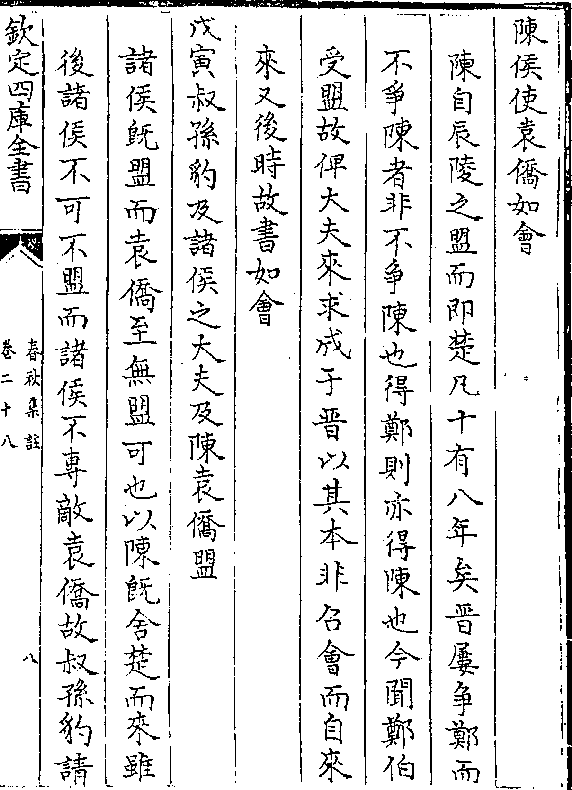 陳侯使袁僑如會
陳自辰陵之盟而即楚凡十有八年矣晉屢争鄭而
不爭陳者非不爭陳也得鄭則亦得陳也今聞鄭伯
受盟故俾大夫來求成于晉以其本非召會而自來
來又後時故書如會
戊寅叔孫豹及諸侯之大夫及陳袁僑盟
諸侯旣盟而袁僑至無盟可也以陳旣舍楚而來雖
後諸侯不可不盟而諸侯不専敵袁僑故叔孫豹請
欽定四庫全書
春秋集註
卷二十八
八